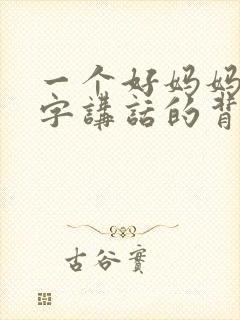 一个好妈妈
字講話的背
古谷實